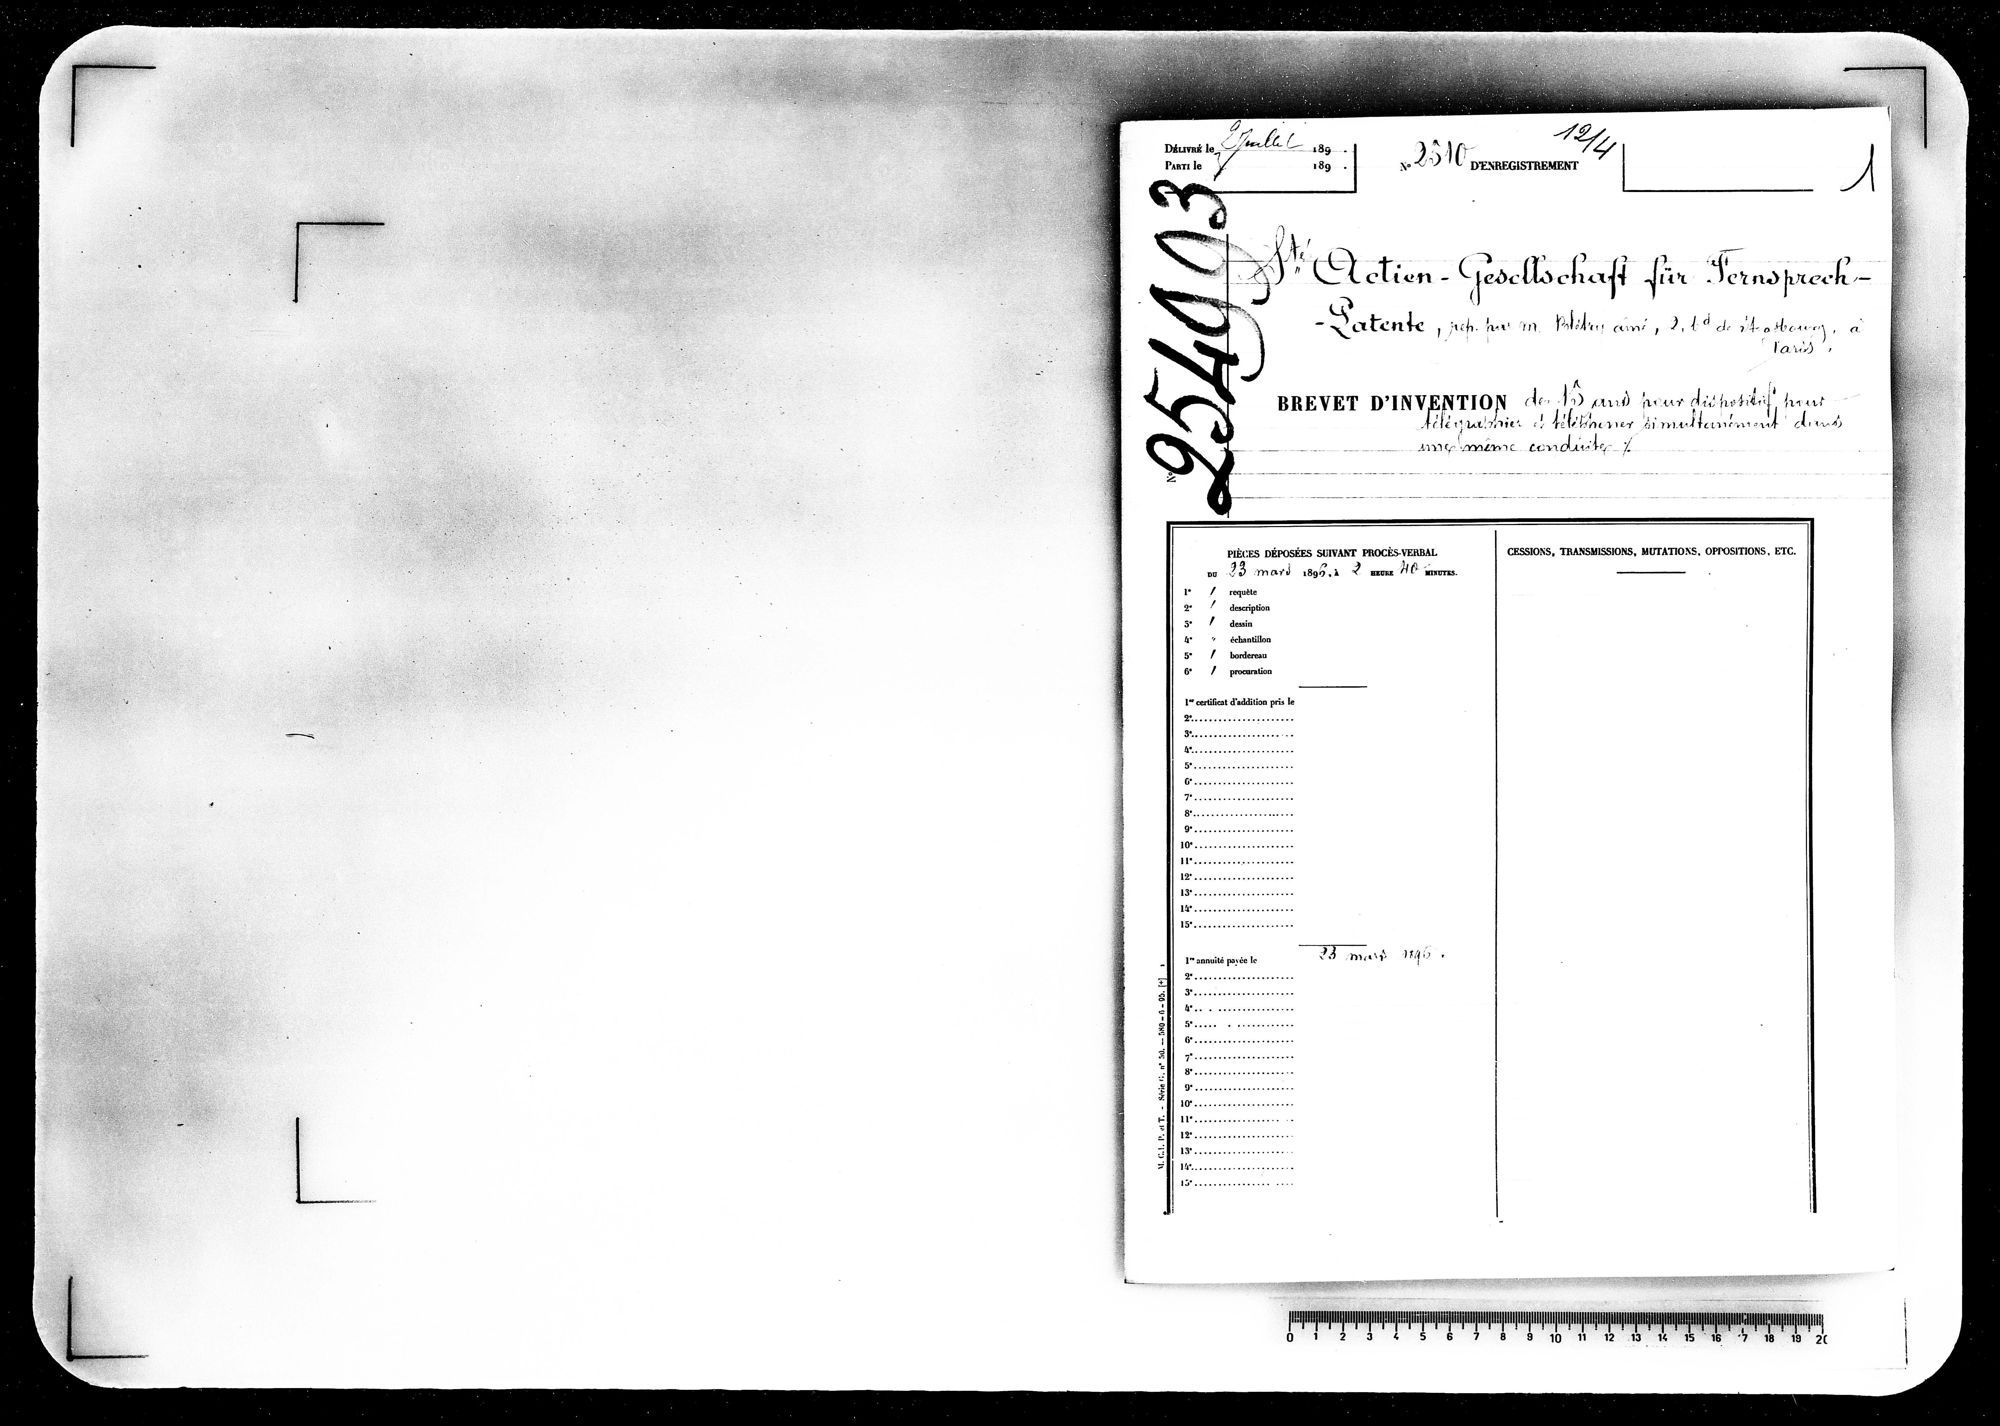 DÉLIVRÉ le 2 Juillet 189 .
PARTI le 189 .
N° 2510 D'ENREGISTREMENT
12/4
1
N° 254993
Sté Actien-Gesellschaft für Fernsprech-
-Patente, rep. par M. Blétry aîné, 2, bd de Strasbourg, à
Paris.
BREVET D'INVENTION de 15 ans pour dispositif pour
télégraphier et téléphoner simultanément dans
une même conduite %
PIÈCES DÉPOSÉES SUIVANT PROCÈS-VERBAL
DU 23 mars 1896, à 2 HEURE 40 MINUTES.
1° / requête
2° / description
3° / dessin
4° " échantillon
5° / bordereau
6° / procuration
1er certificat d'addition pris le
2e
3e
4e
5e
6e
7e
8e
9e
10e
11e
12e
13e
14e
15e
1re annuité payée le 23 mars 1896.
2e
3e
4e
5e
6e
7e
8e
9e
10e
11e
12e
13e
14e
15e
CESSIONS, TRANSMISSIONS, MUTATIONS, OPPOSITIONS, ETC.
M. C. I. P. et T. - Série C, n° 30. — 580-6-95. [*]
0 1 2 3 4 5 6 7 8 9 10 11 12 13 14 15 16 17 18 19 20